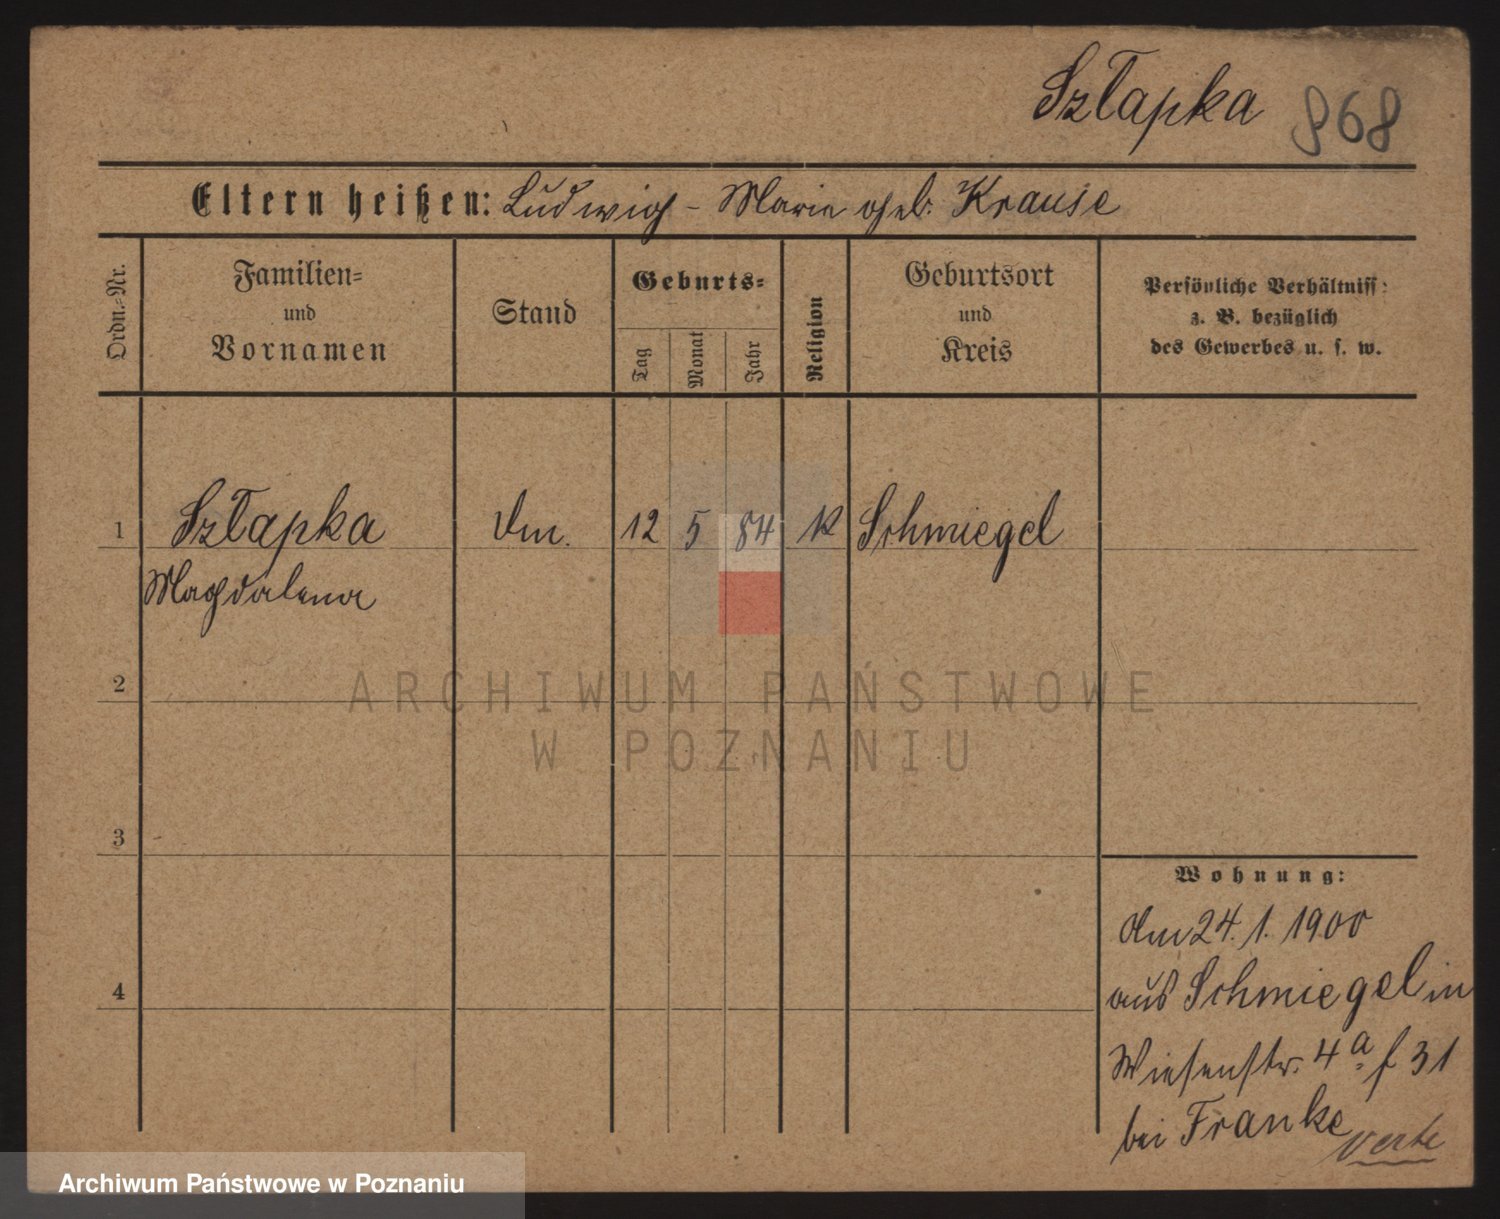 Szłapka 868
Eltern heißen: Ludwig - Marie geb. Krause
Ordn.=Nr.
Familien=
und
Vornamen
Stand
Geburts=
Tag
Monat
Jahr
Religion
Geburtsort
und
Kreis
Persönliche Verhältniss:
z. B. bezüglich
des Gewerbes u. s. w.
1 Szłapka 12 5 84 K Schmiegel
Magdalena
2
ARCHIWUM PAŃSTWOWE
W POZNANIU
3
Wohnung:
24. 1. 1900
4
aus Schmiegel in
Wiesenstr. 4a f 31
bei Franke
verte
Archiwum Państwowe w Poznaniu